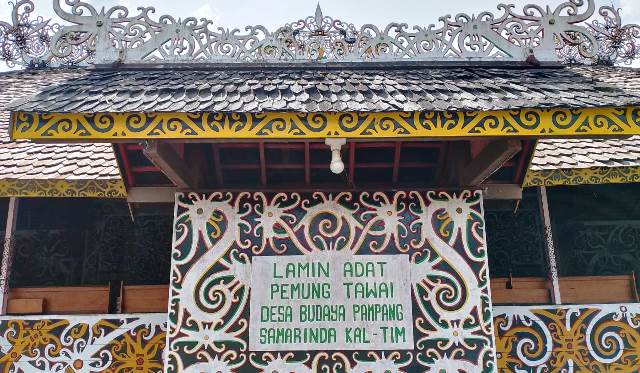 LAMIN ADAT
PEMUNG TAWAI
DESA BUDAYA PAMPANG
SAMARINDA KAL-TIM